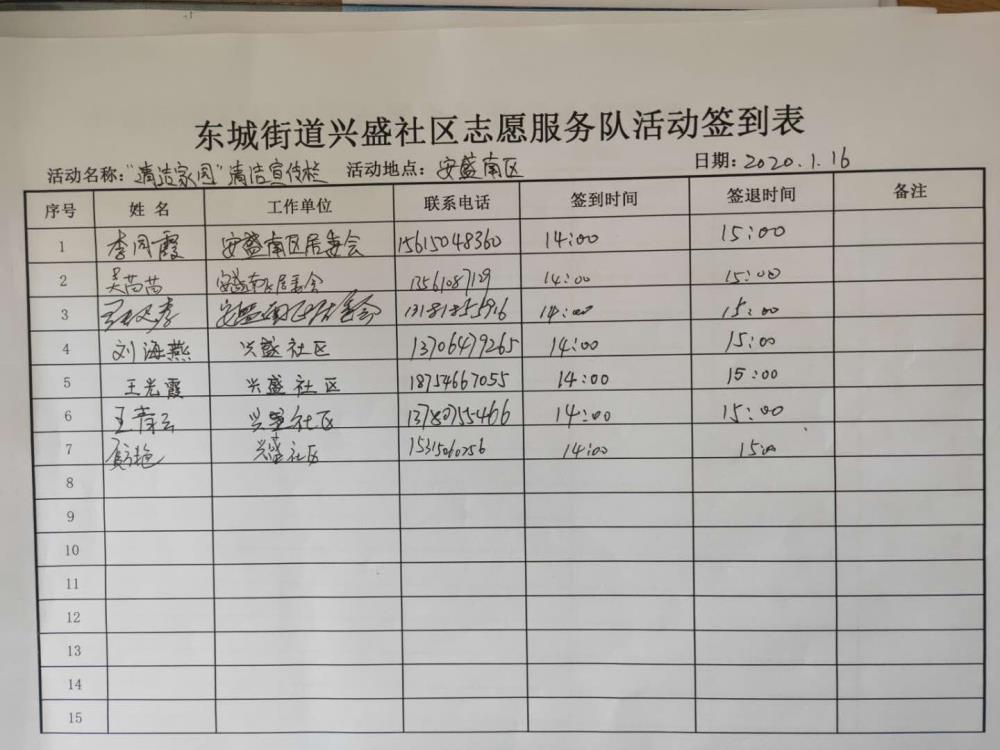 东城街道兴盛社区志愿服务队活动签到表
活动名称："清洁家园"清洁宣传栏 活动地点：安盛南区 日期：2020.1.16
序号 姓名 工作单位 联系电话 签到时间 签退时间 备注
1 李同霞 安盛南区居委会 15615048360 14:00 15:00
2 吴苗苗 安盛南区居委会 14:00 15:00
3 安盛南区居委会 14:00 15:00
4 刘海燕 兴盛社区 13706479265 14:00 15:00
5 王光霞 兴盛社区 18754667055 14:00 15:00
6 王青云 兴盛社区 14:00 15:00
7 兴盛社区 14:00 15:00
8
9
10
11
12
13
14
15